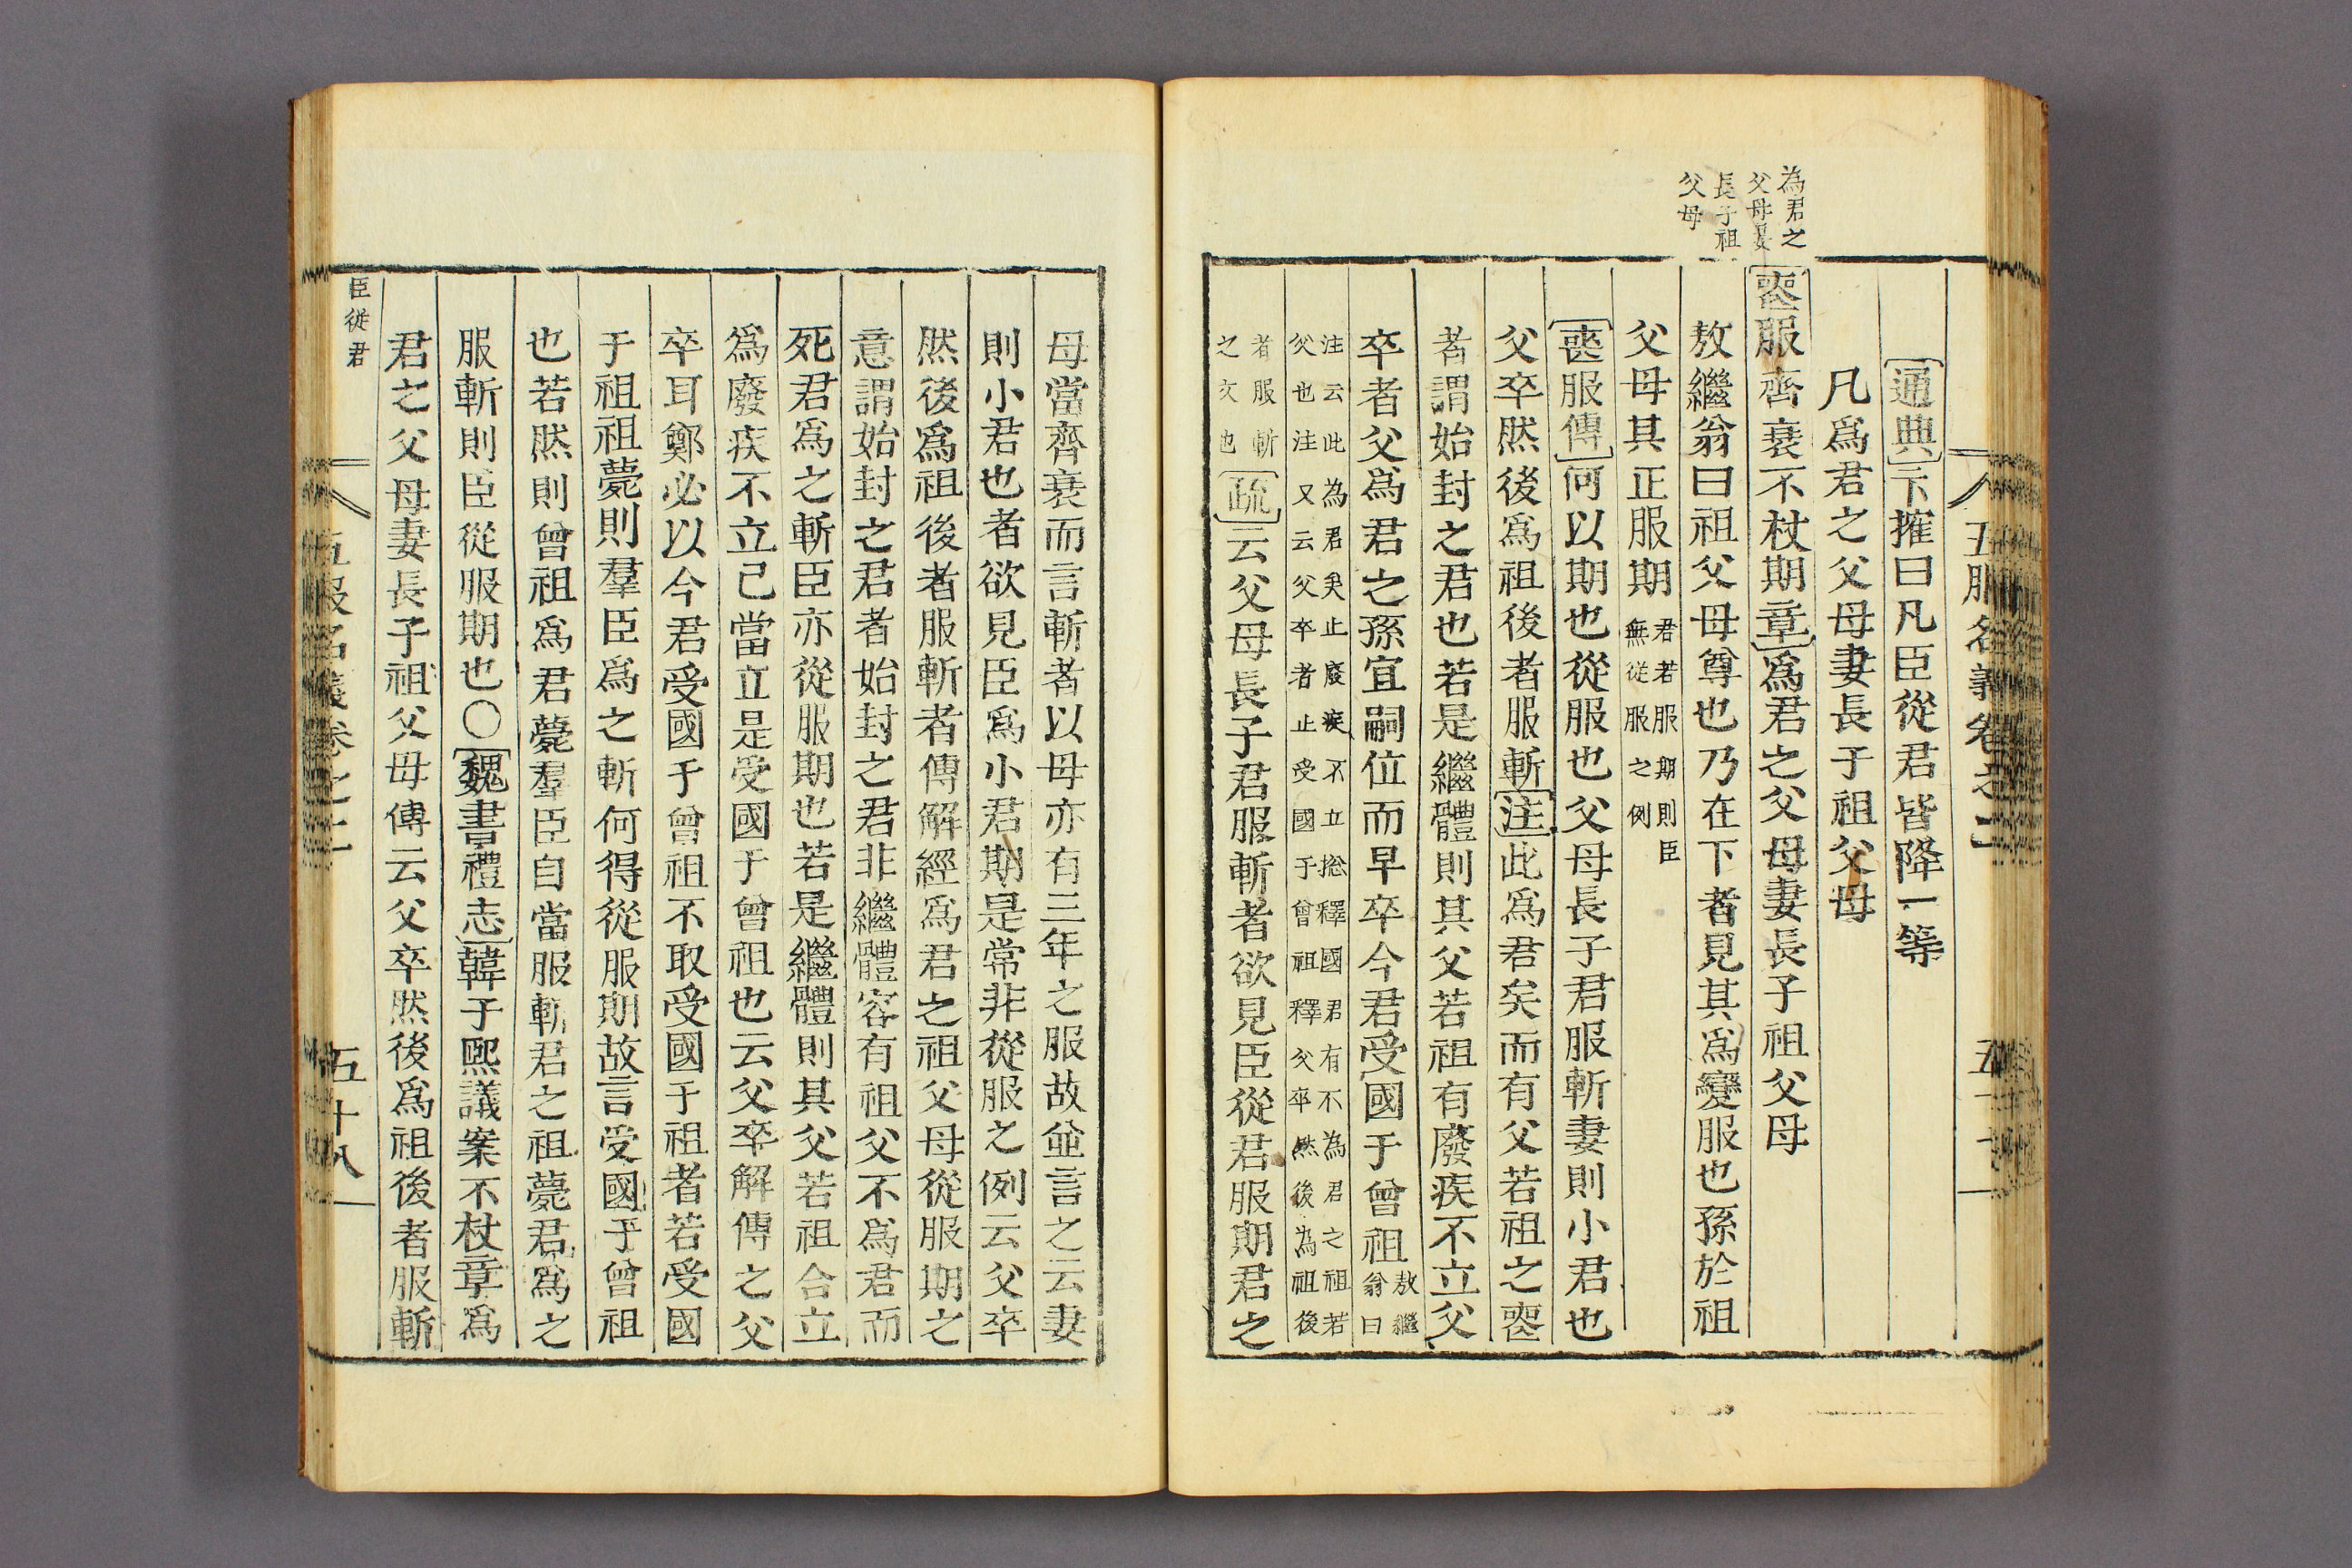 為君之
父母妻
長子祖
父母
五服名義卷之二
通典下搉曰凡臣從君皆降一等
凡爲君之父母妻長子祖父母
喪服齊衰不杖期章爲君之父母妻長子祖父母
敖繼翁曰祖父母尊也乃在下者見其爲變服也孫於祖
父母其正服期君若服期則臣
無從服之例
喪服傳何以期也從服也父母長子君服斬妻則小君也
父卒然後爲祖後者服斬注此爲君矣而有父若祖之喪
者謂始封之君也若是繼體則其父若祖有廢疾不立父
卒者父爲君之孫宜嗣位而早卒今君受國于曾祖敖繼
翁曰
注云此為君矣止廢疾不立捴釋國君有不為君之祖若
父也注又云父卒者止受國于曾祖釋父卒然後為祖後
者服斬
之文也
疏云父母長子君服斬者欲見臣從君服期君之
母當齊衰而言斬者以母亦有三年之服故並言之云妻
則小君也者欲見臣爲小君期是常非從服之例云父卒
然後爲祖後者服斬者傳解經爲君之祖父母從服期之
意謂始封之君者始封之君非繼體容有祖父不爲君而
死君爲之斬臣亦從服期也若是繼體則其父若祖合立
爲廢疾不立己當立是受國于曾祖也云父卒解傳之父
卒耳鄭必以今君受國于曾祖不取受國于祖者若受國
于祖祖薨則羣臣爲之斬何得從服期故言受國于曾祖
也若然則曾祖爲君薨羣臣自當服斬君之祖薨君爲之
服斬則臣從服期也〇魏書禮志韓子熙議案不杖章爲
君之父母妻長子祖父母傳云父卒然後爲祖後者服斬
臣從君
五服名義卷之二
五十八